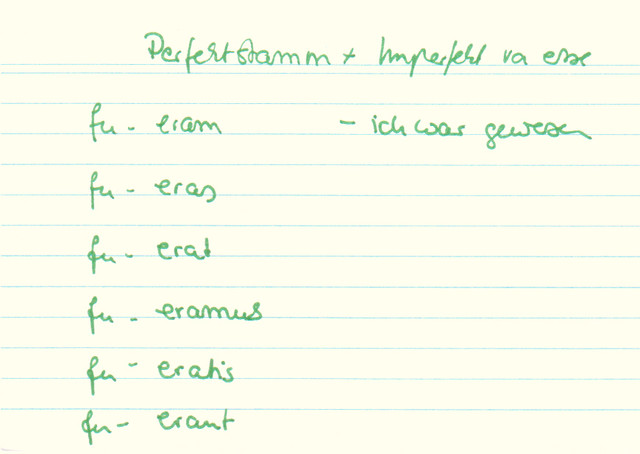 Perfektstamm + Imperfekt va esse
fu - eram - ich war gewesen
fu - eras
fu - erat
fu - eramus
fu - eratis
fu - erant